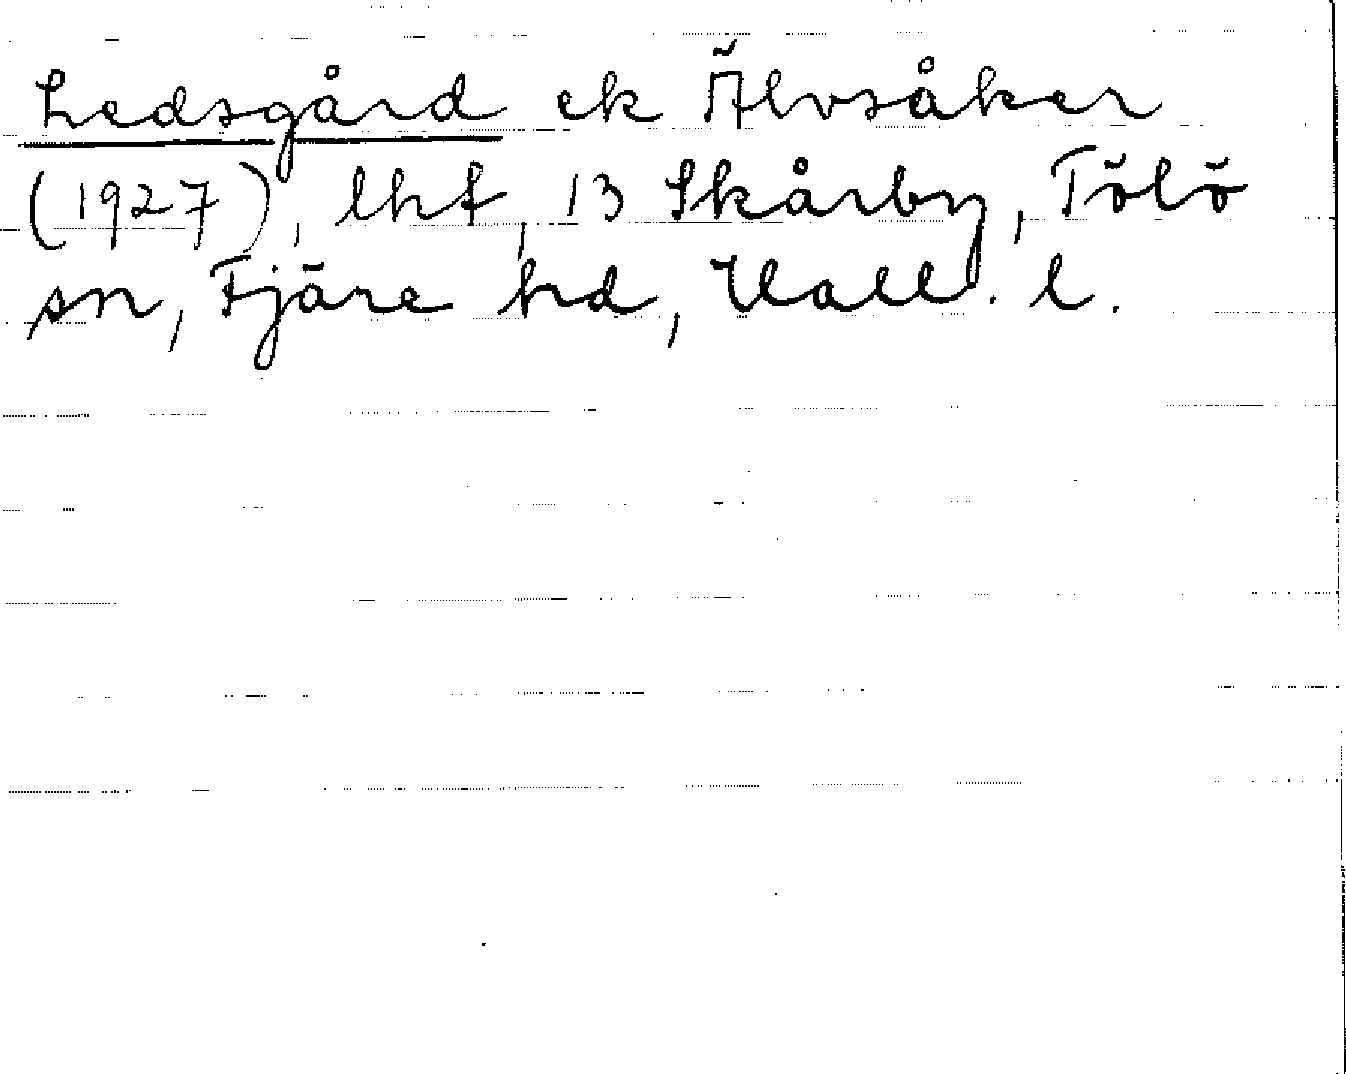 Ledsgård ek Älvsåker
(1927), lht, 13 Skårby, Tölö
sn, Fjäre hd, Hall. l.